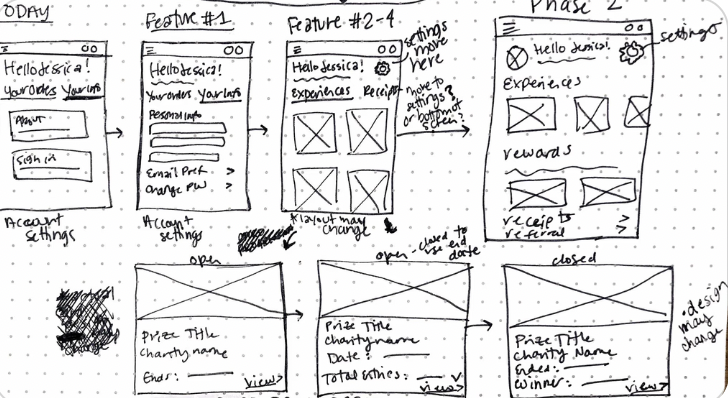 ODAY
Hello Jessica!
Your Orders Your Info
About
Sign in
Account
settings
Feature #1
Hello Jessica!
Your Orders Your Info
Personal Info
Email Pref >
Change PW >
Account
settings
Feature #2-4
Hello Jessica!
Experiences Receipts
settings
more
here
move to
settings?
or bottom of
screen?
*layout may
change
Phase 2
Hello Jessica!
settings
Experiences
rewards
receipts >
referral >
open
Prize Title
Charity name
Ends:
View>
open - closed to
use end
date
Prize Title
Charity name
Date:
Total Entries:
View>
closed
Prize Title
Charity Name
Ended:
Winner:
View>
•design
may
change